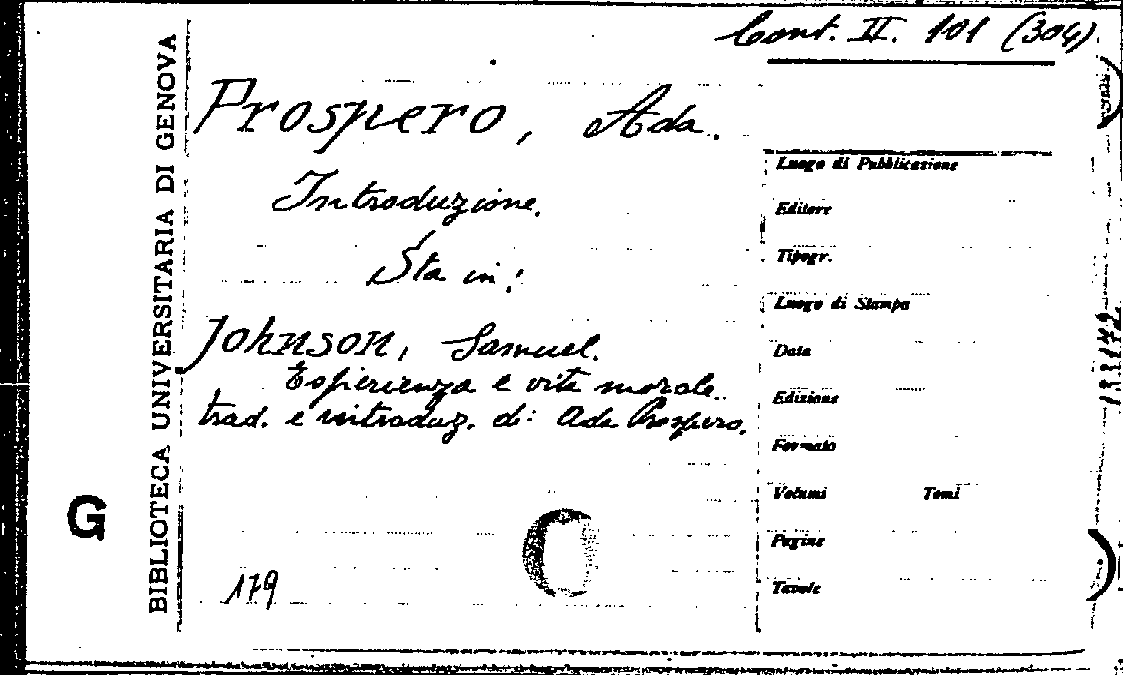 Cont. II. 101 (304).
Prospero, Ada.
Introduzione.
Sta in:
Johnson, Samuel.
Esperienza e vita morale.
trad. e introduz. di: Ada Prospero.
179
BIBLIOTECA UNIVERSITARIA DI GENOVA
G
Luogo di Pubblicazione
Editore
Tipogr.
Luogo di Stampa
Data
Edizione
Formato
Volumi Tomi
Pagine
Tavole